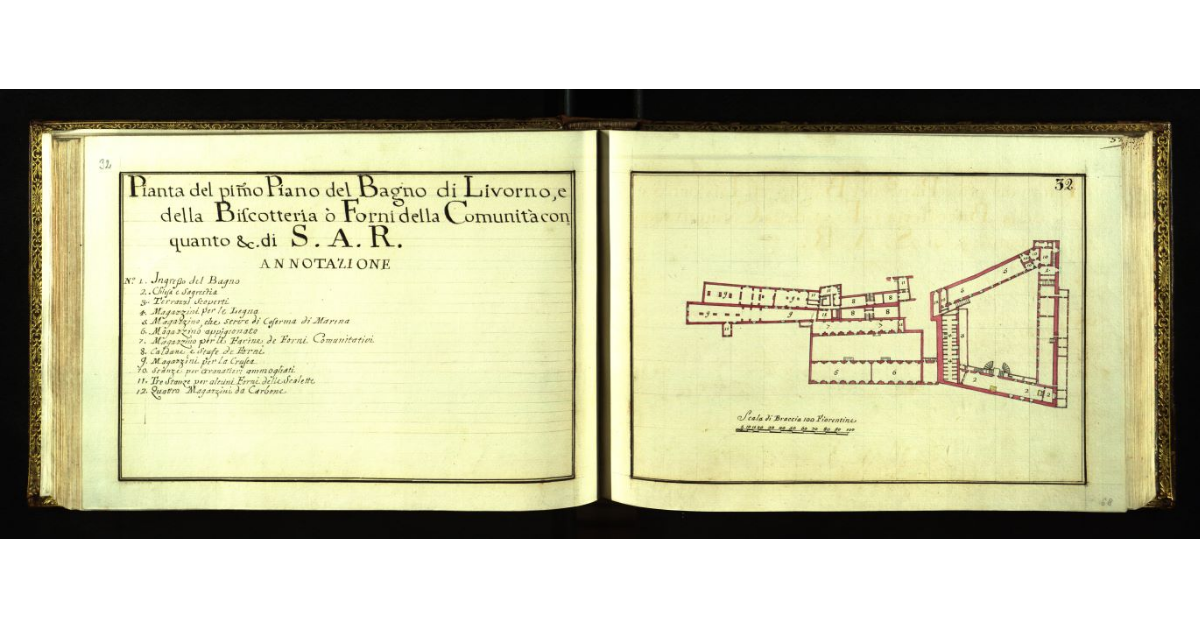 32
Pianta del pimo Piano del Bagno di Livorno, e
della Biscotteria ò Forni della Comunità con
quanto &c. di S. A. R.
ANNOTAZIONE
No. 1. Ingresso del Bagno
2. Chiesa e Sagrestia
3. Terrazzi Scoperti
4. Magazzini per le Legna
5. Magazzino che serve di Caserma di Marina
6. Magazzino appigionato
7. Magazzino per le Farine de Forni Comunitativi
8. Caldane e Stufe de Forni
9. Magazzini per la Crusca
10. Stanze per Granatieri ammogliati
11. Tre Stanze per alcuni Forni delle Scalette
12. Quattro Magazzini da Carbone
32
Scala di Braccia 100 Fiorentine